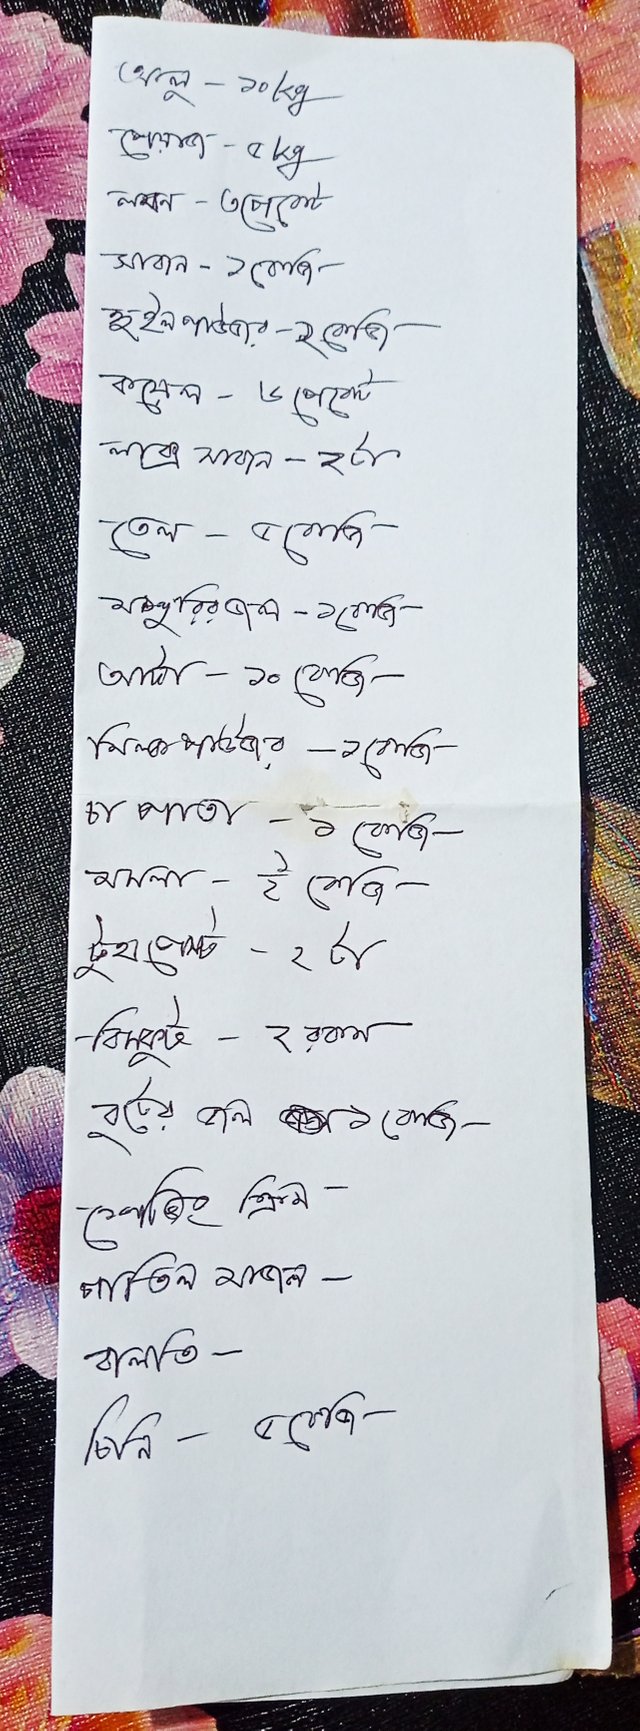 আলু - ১০ kg
পেয়াজ - ৫ kg
লবন - ৩ পেকেট
সাবান - ১ কেজি
হুইল পাউডার - ২ কেজি
কয়েল - ৬ পেকেট
লাক্স সাবান - ২ টা
তেল - ৫ কেজি
মশুরির ডাল - ১ কেজি
আটা - ১০ কেজি
মিল্ক পাউডার - ১ কেজি
চা পাতা - ১ কেজি
মসলা - কেজি
টুথ পেস্ট - ২ টা
বিসকুট - ২ রকম
বুটের ডাল ১ কেজি
শেভিং ক্রিম -
পাতিল মাজন -
বালতি -
চিনি - ৫ কেজি